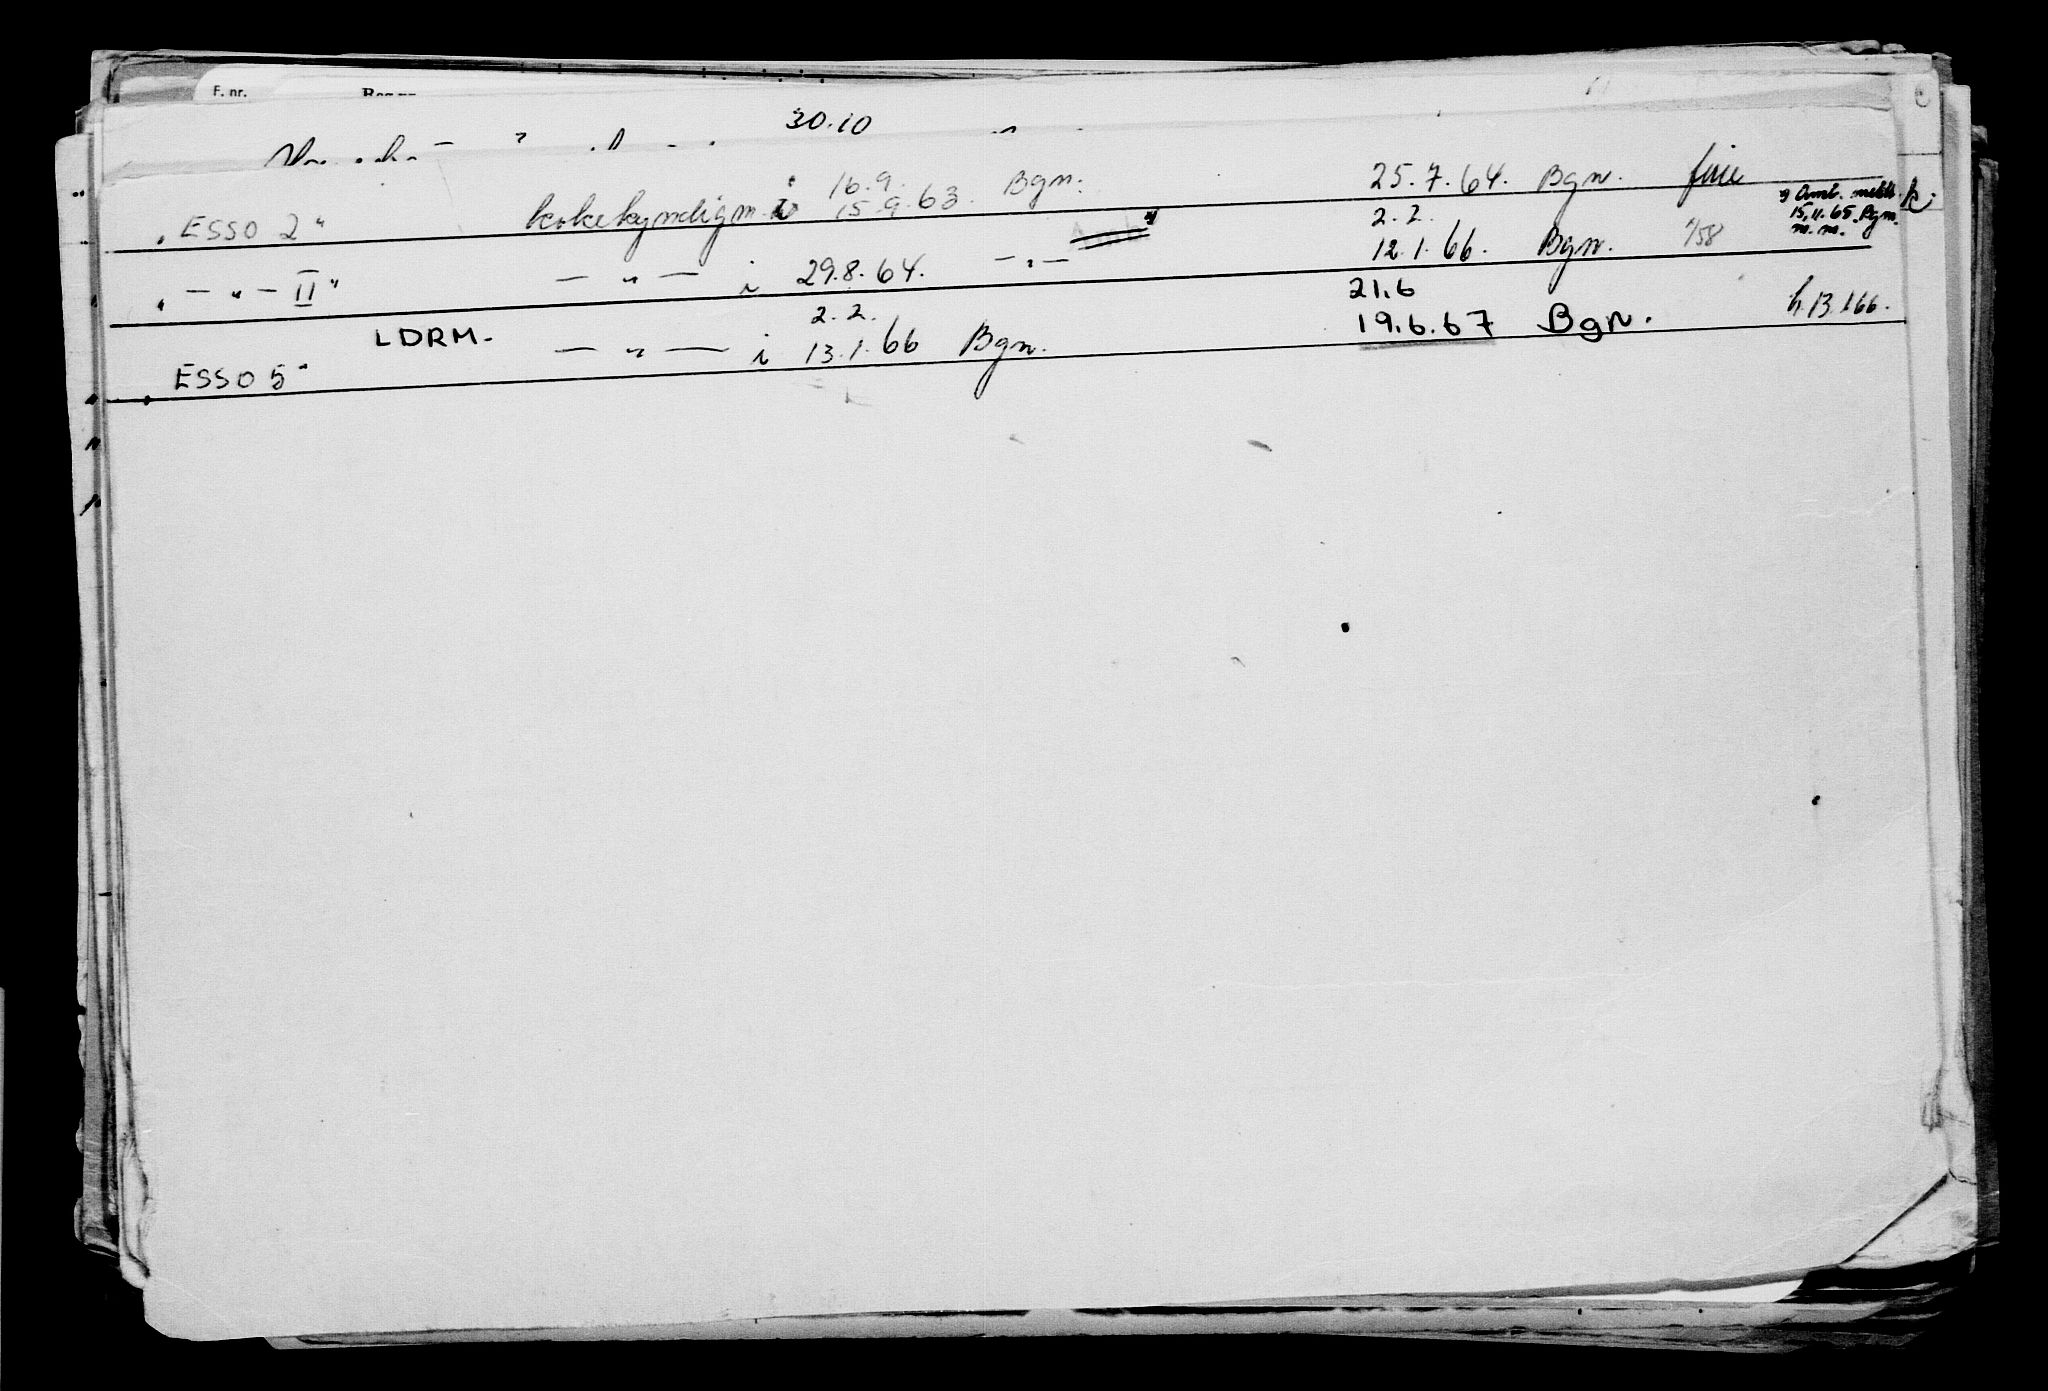 F. nr.
30.10
16.9.
"ESSO 2" kokekyndigm. i 15.9.63. Bgn. 25.7.64. Bgn.
*) Amb. meldt
2.2. 15.11.65. Bgn.
m. m.
" — " — II" — " — i 29.8.64. — " — *) 12.1.66. Bgn. 1/58
LDRM. 2.2. 21.6
"ESSO 5" — " — i 13.1.66 Bgn. 19.6.67 Bgn. h.13.1.66.